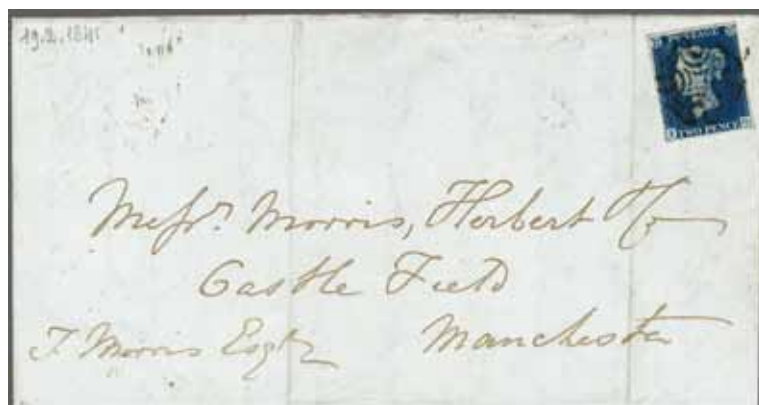 19.2.1841
POSTAGE
TWO PENCE
Messrs. Morris, Herbert & Co
Castle Field
Manchester
J Morris Esqre